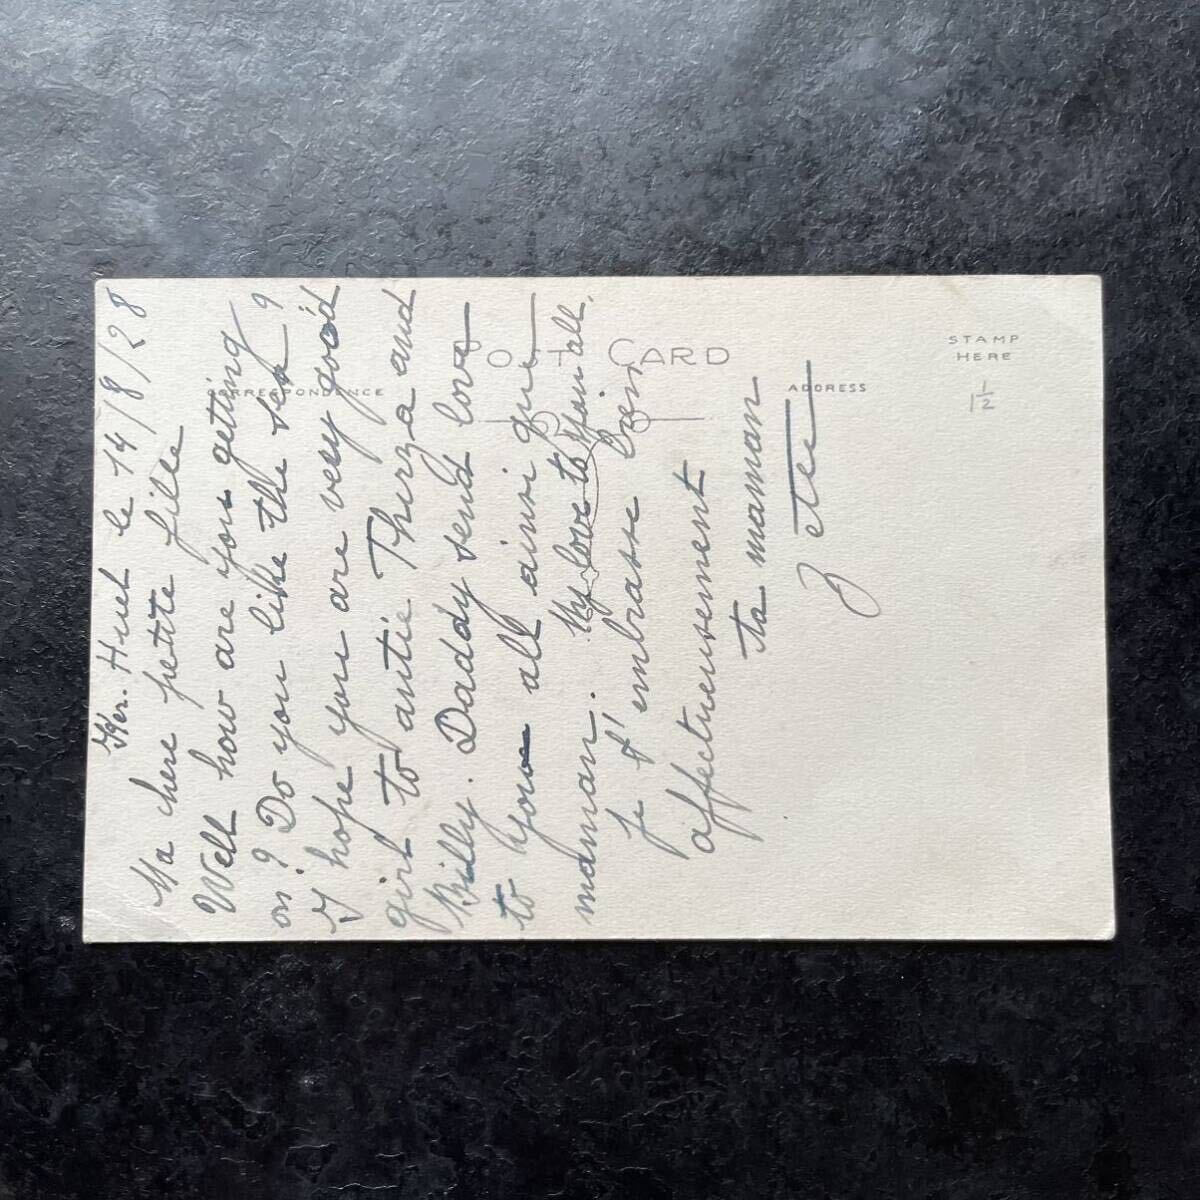 POST CARD
CORRESPONDENCE
ADDRESS
STAMP
HERE
1 1/2
le 14/8/28
Ma chere petite fille
Well how are you getting
on? Do you like the sea?
I hope you are very good
girl to antie Thirza and
Billy. Daddy send love
to you all ainsi que
maman. My love to you all.
Je t'embrasse bien
affectueusement
ta maman
Zette